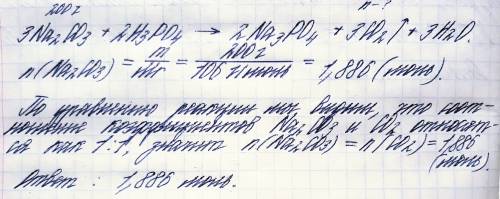 200г n-?
3Na₂CO₃ + 2H₃PO₄ → 2Na₃PO₄ + 3CO₂↑ + 3H₂O.
n(Na₂CO₃) = m/Mr = 200г/106 г/моль = 1,886 (моль).
По уравнению реакции мы видим, что соот-
ношение коэффициентов Na₂CO₃ и CO₂ относят-
ся как 1:1, значит n(Na₂CO₃) = n(CO₂) = 1,886
(моль).
Ответ : 1,886 моль.